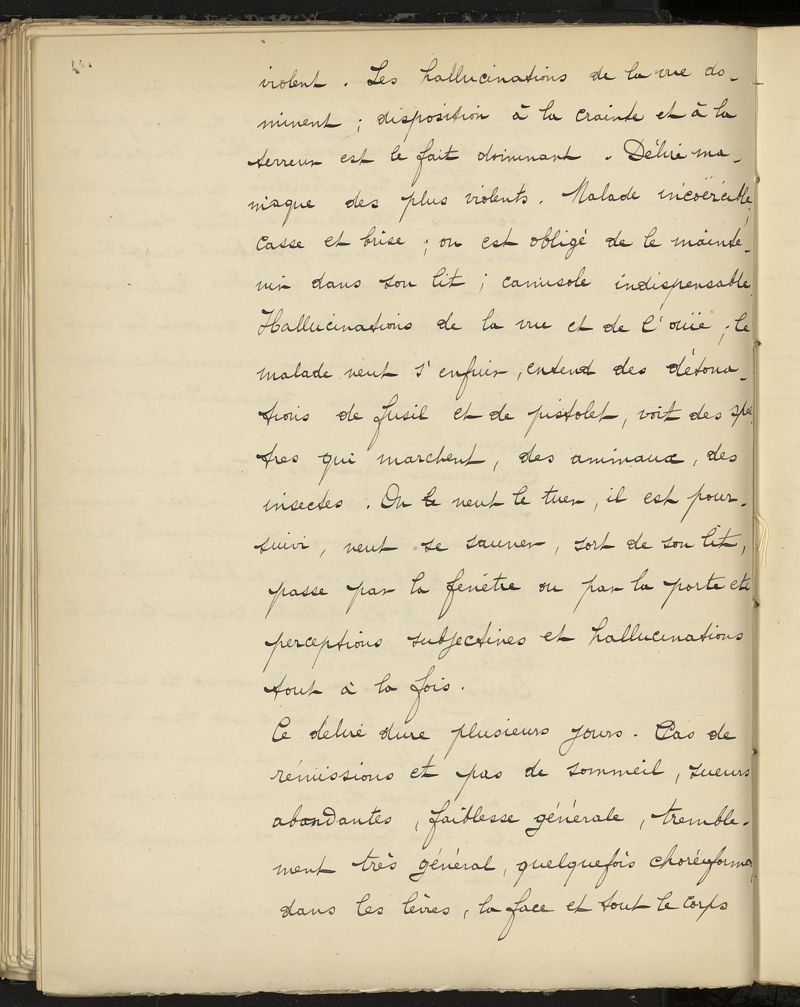 violent. Les hallucinations de la vue do-
minent ; disposition à la crainte et à la
terreur est le fait dominant. Délire ma-
niaque des plus violents. Malade incoërcible,
casse et brise ; on est obligé de le mainte-
nir dans son lit ; camisole indispensable.
Hallucinations de la vue et de l'ouïe ; le
malade veut s'enfuir, entend des détona-
tions de fusil et de pistolet, voit des spec
tres qui marchent, des aminaux, des
insectes. On le veut le tuer, il est pour-
suivi, veut se sauver, sort de son lit,
passe par la fenêtre ou par la porte etc
perceptions subjectives et hallucinations
tout à la fois.
Ce délire dure plusieurs jours. Pas de
rémissions et pas de sommeil, sueurs
abondantes, faiblesse générale, tremble-
ment très général, quelquefois choréiforme,
dans les lèvres, la face et tout le corps